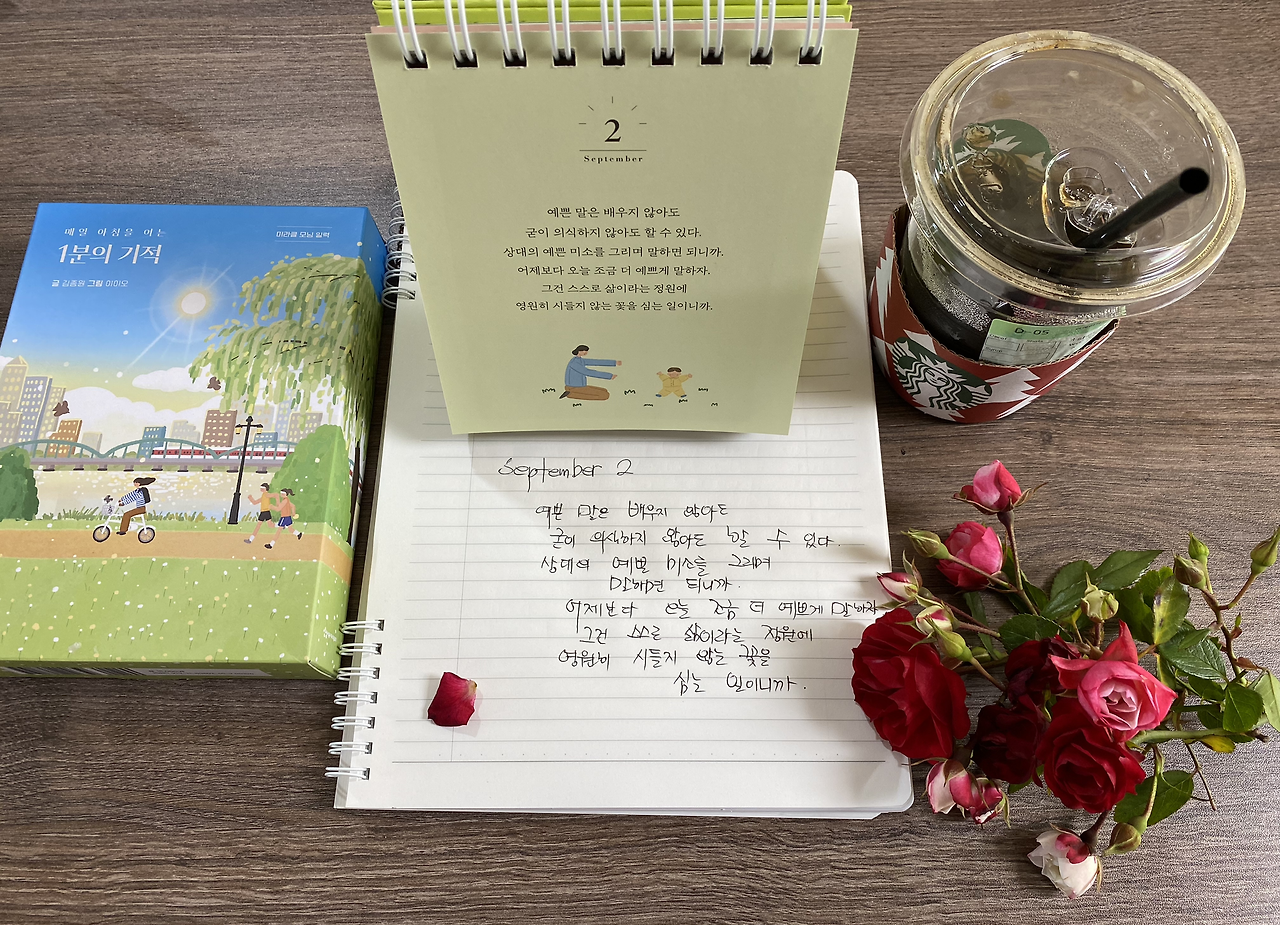 2
September
예쁜 말은 배우지 않아도
굳이 의식하지 않아도 할 수 있다.
상대의 예쁜 미소를 그리며 말하면 되니까.
어제보다 오늘 조금 더 예쁘게 말하자.
그건 스스로 삶이라는 정원에
영원히 시들지 않는 꽃을 심는 일이니까.
매일 아침을 여는
1분의 기적
미라클 모닝 일력
글 김종원 그림 이이오
D-05
September 2
예쁜 말은 배우지 않아도
굳이 의식하지 않아도 할 수 있다.
상대의 예쁜 미소를 그리며
말하면 되니까.
어제보다 오늘 조금 더 예쁘게 말하자
그건 스스로 삶이라는 정원에
영원히 시들지 않는 꽃을
심는 일이니까.